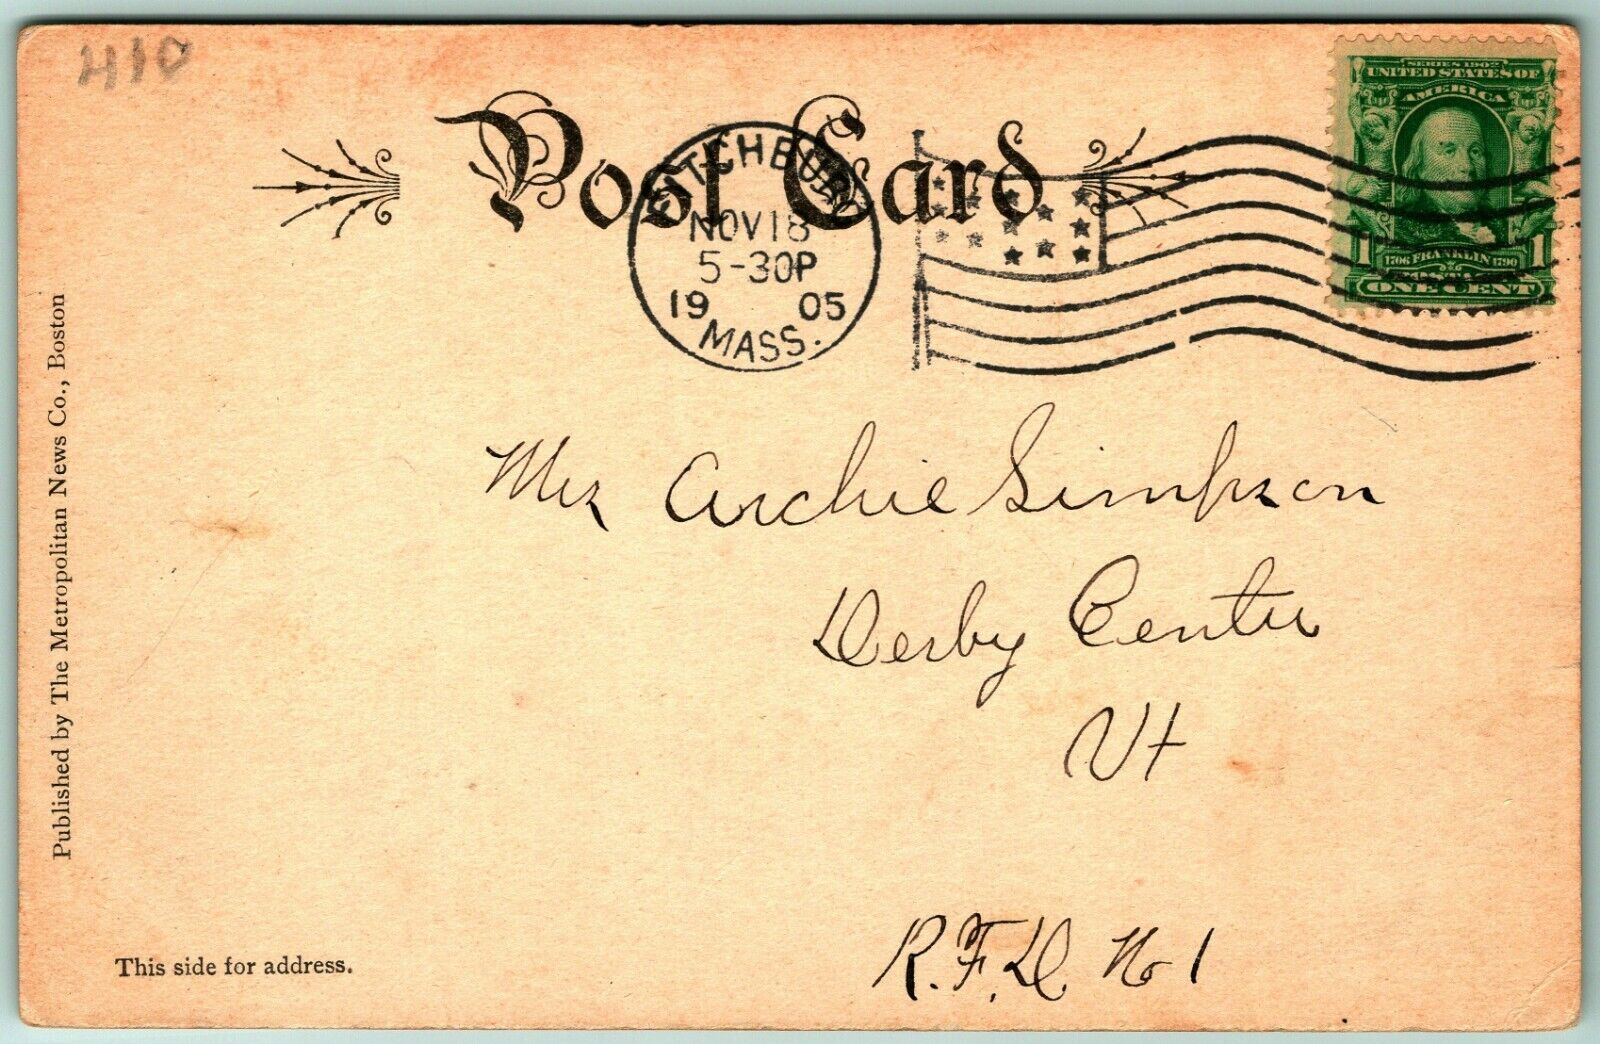 410
Post Card
FITCHBURG
NOV 18
5-30P
1905
MASS.
SERIES 1902
UNITED STATES OF
AMERICA
1 1706 FRANKLIN 1790 1
POSTAGE
ONE CENT
Mrs Archie Simpson
Derby Center
Vt
R.F.D. No 1
Published by The Metropolitan News Co., Boston
This side for address.